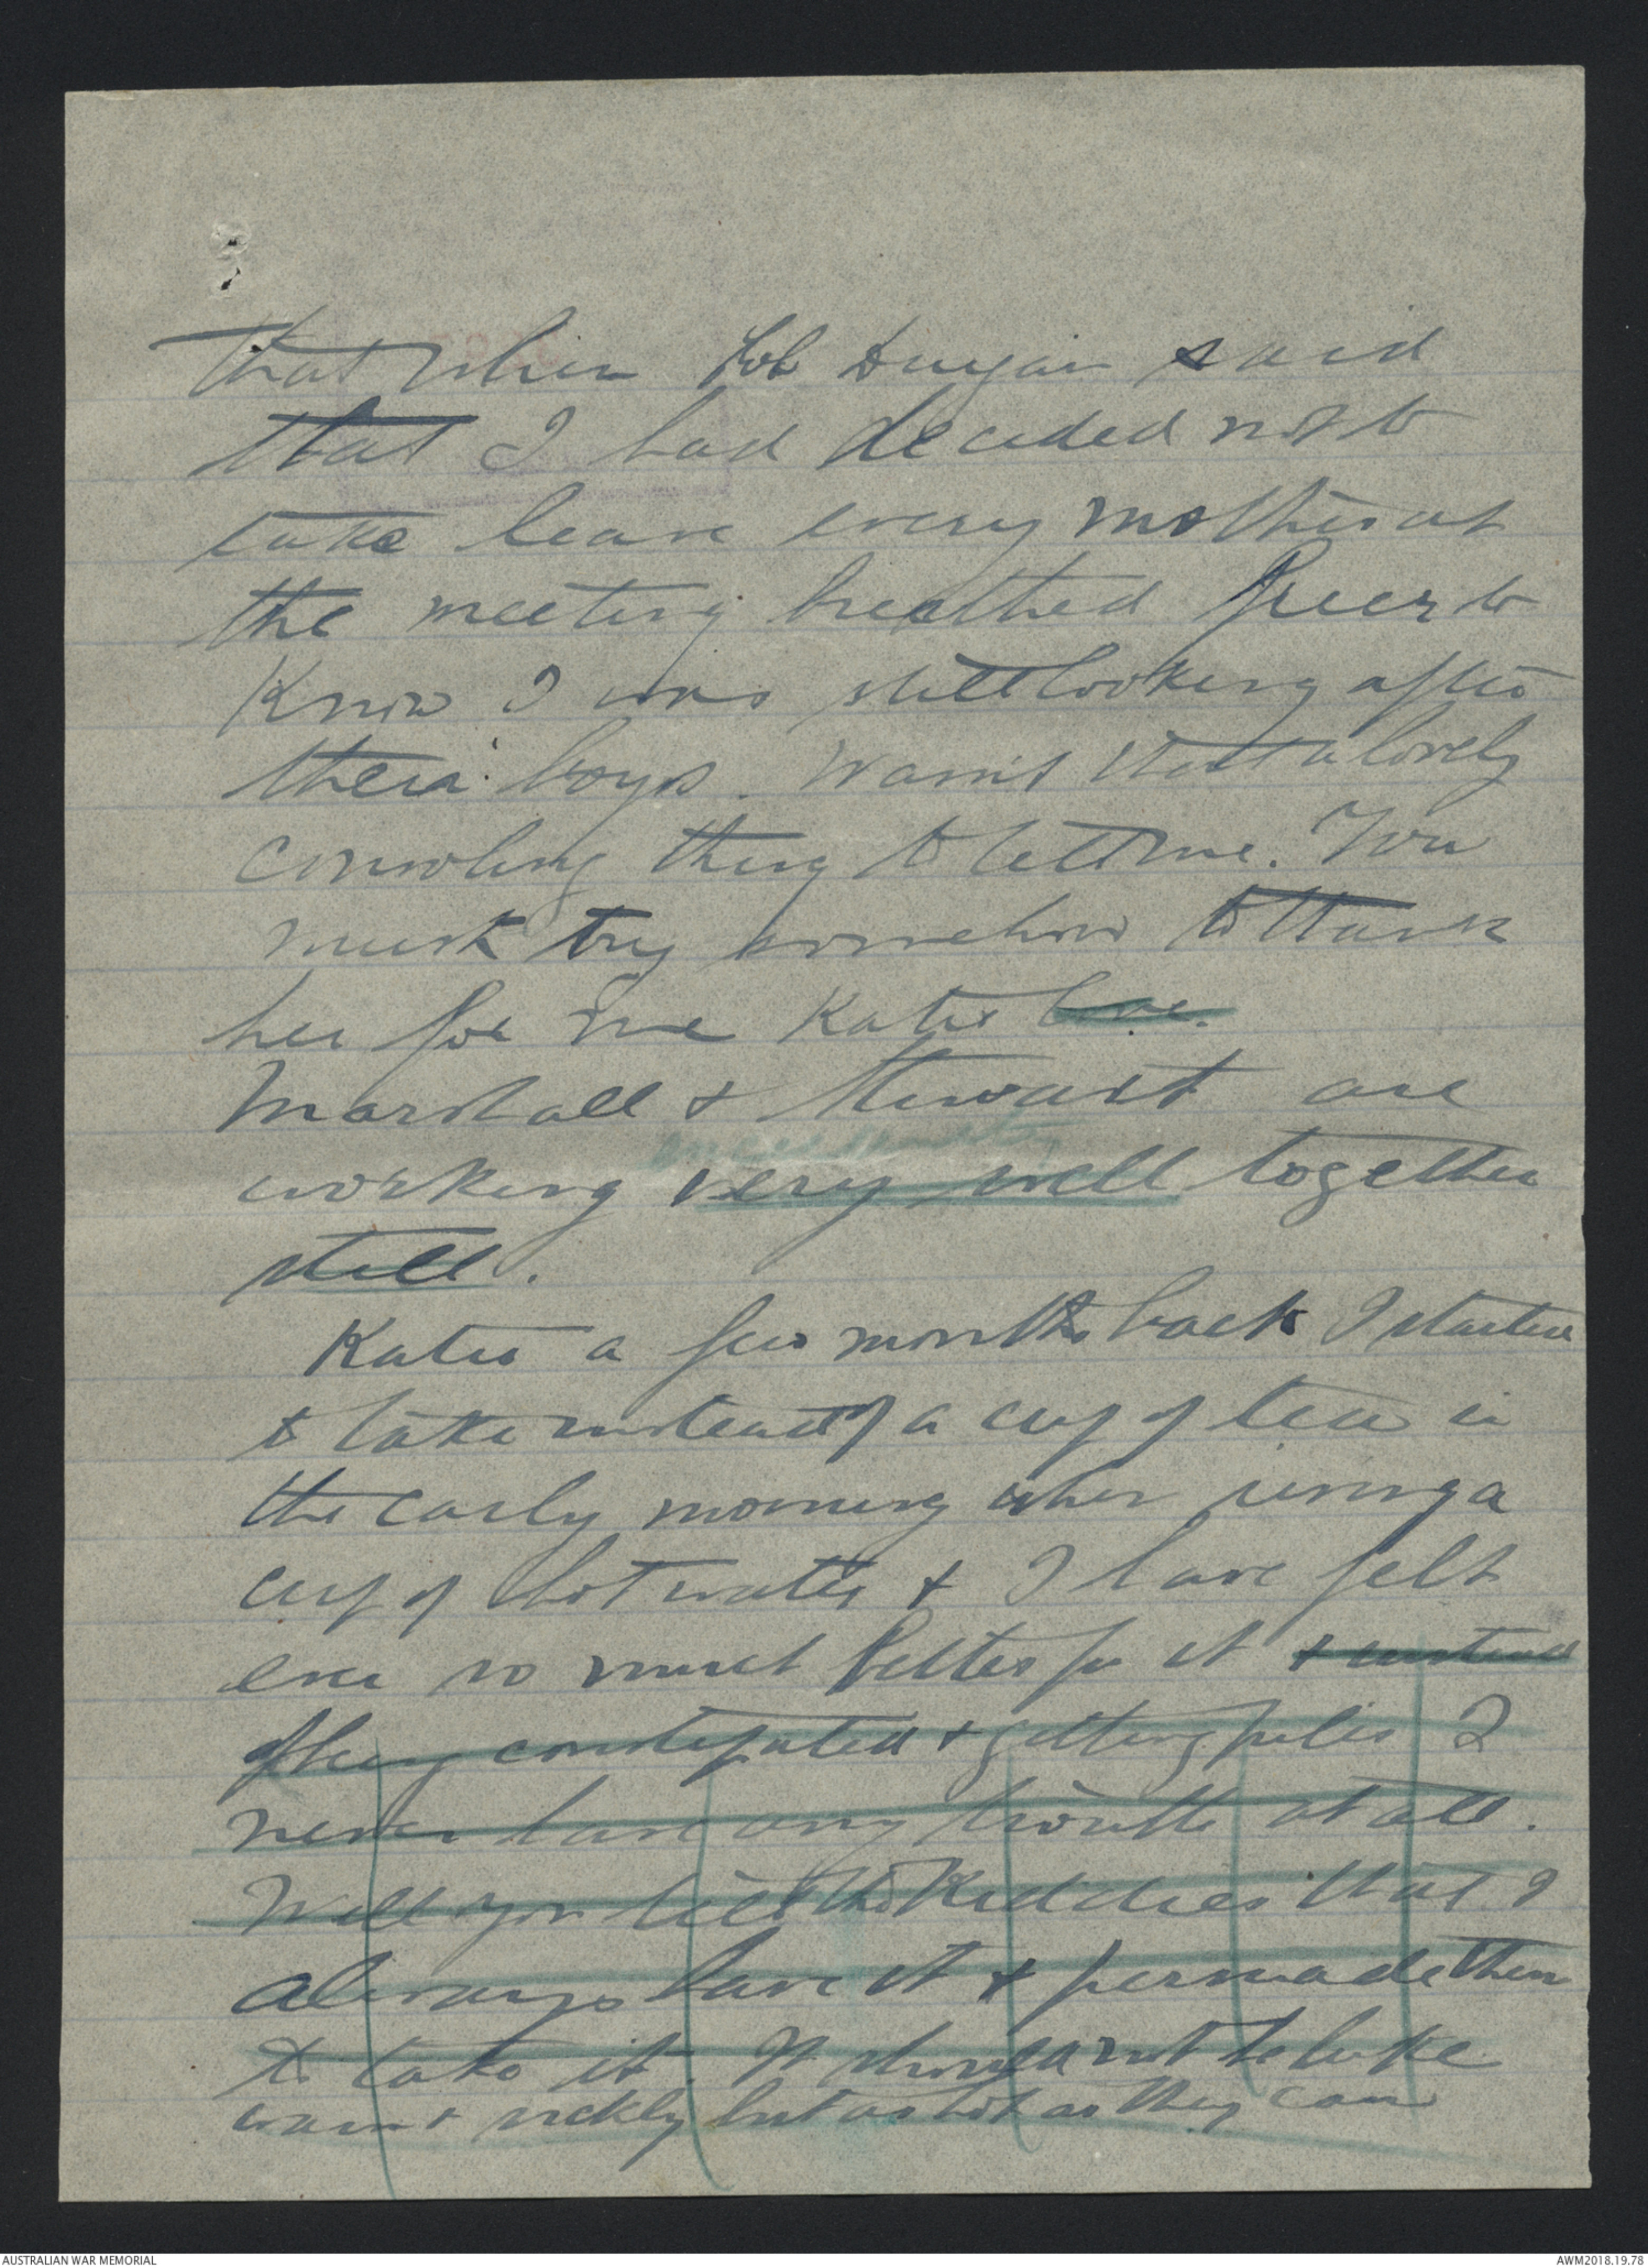 that when Bob Dugan said
that I had decided not to
take leave every mother at
the meeting breathed freer to
know I was still looking after
their boys. Wasn't that a lovely
consoling thing to tell me. You
must try somehow to thank
her for me Katie love.
Marshall & Stewart are
working very well together
still.
Katie a few months back I started
to take instead of a cup of tea in
the early morning when rising a
cup of hot water & I have felt
ever so much better for it & instead
of being constipated & getting piles I
never have any trouble at all.
Will you tell the Kiddies that I
always have it & persuade them
to take it. It should not be luke
warm & sickly but as hot as they can
AUSTRALIAN WAR MEMORIAL
AWM2018.19.78